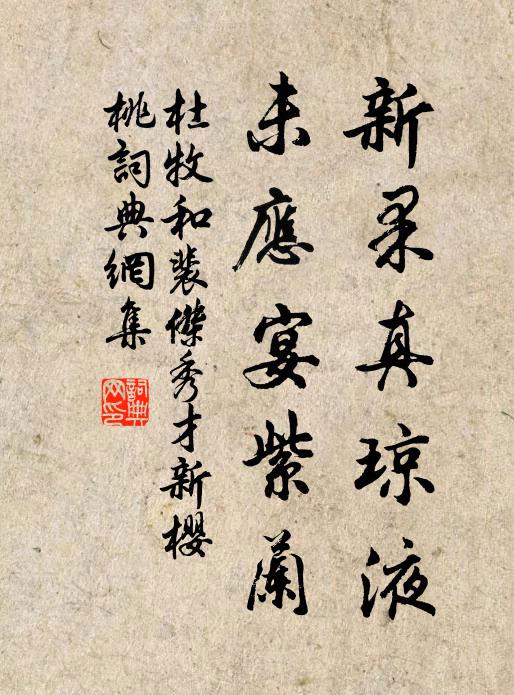 新果真琼液
未應宴紫蘭
杜牧和裴傑秀才新櫻
桃詞典網集
詞典
网印